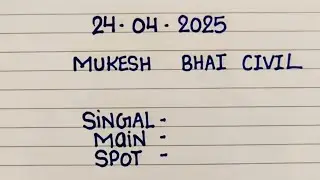 24.04.2025
MUKESH BHAI CIVIL
SiNGAL -
MAIN -
SPOT -